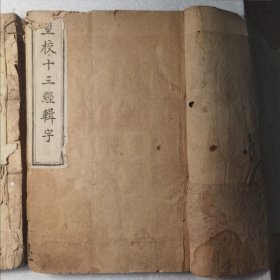 重校十三經輯字